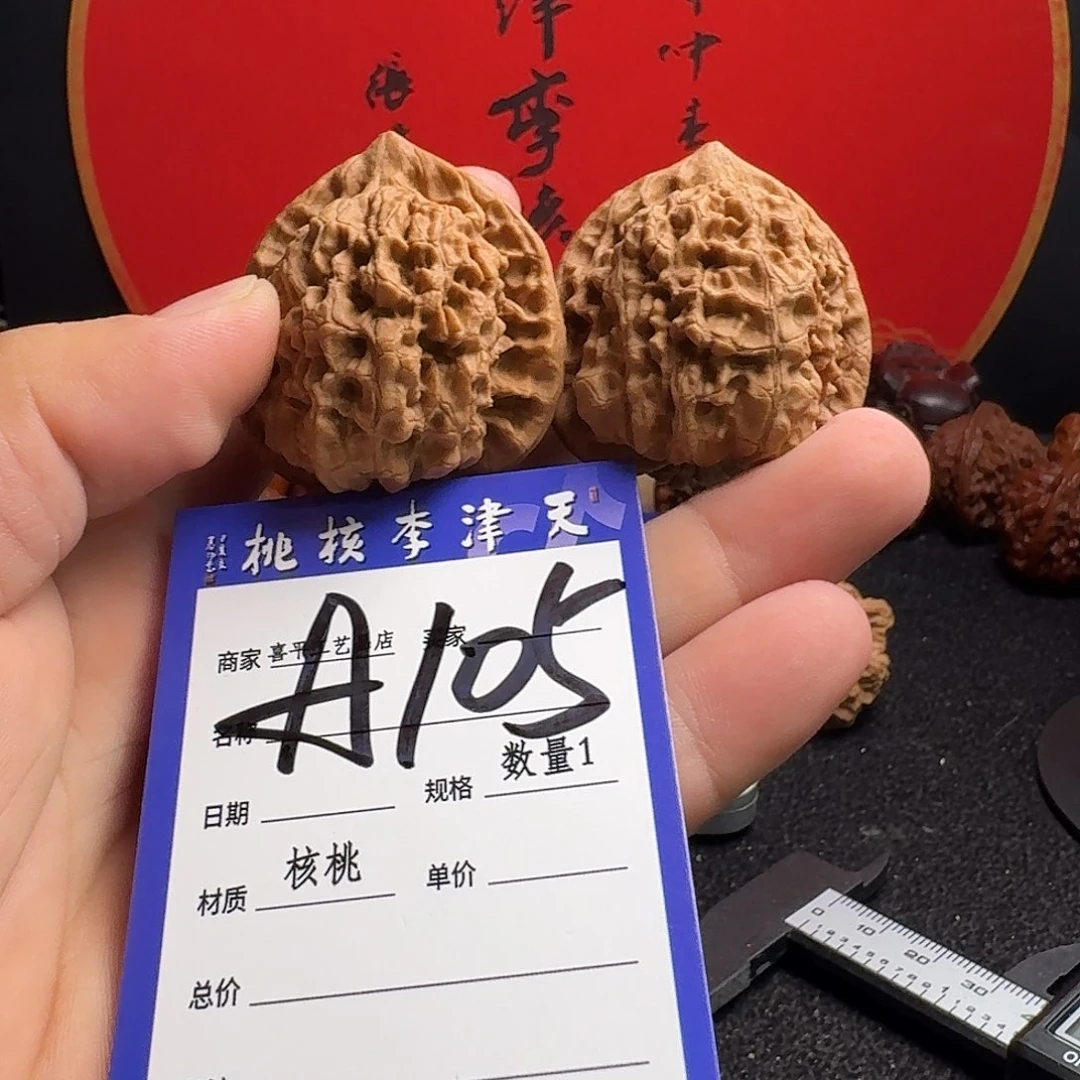 天津李核桃
A105
商家 喜平工艺品店 买家
名称
数量1
日期 规格
核桃
材质 单价
总价
0 10 20 30